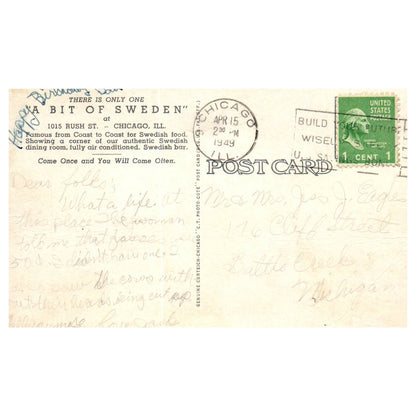 Happy Birthday
THERE IS ONLY ONE
"A BIT OF SWEDEN"
at
1015 RUSH ST. – CHICAGO, ILL.
Famous from Coast to Coast for Swedish food.
Showing a corner of our authentic Swedish
dining room, fully air conditioned. Swedish bar.
Come Once and You Will Come Often.
Dear folks,
What a life. At
this place. The woman
told me that
I didn't have one. I
saw the cows with
their heads being cut
Love
GENUINE CURTEICH-CHICAGO "C.T. PHOTO-COTE" POST CARD
CHICAGO
APR 15
2 PM
1949
ILL.
BUILD YOUR FUTURE
WISELY
UNITED
STATES
POSTAGE
1 CENT 1
POST CARD
Mr & Mrs Jess J.
176 Cliff Street
Battle Creek,
Michigan